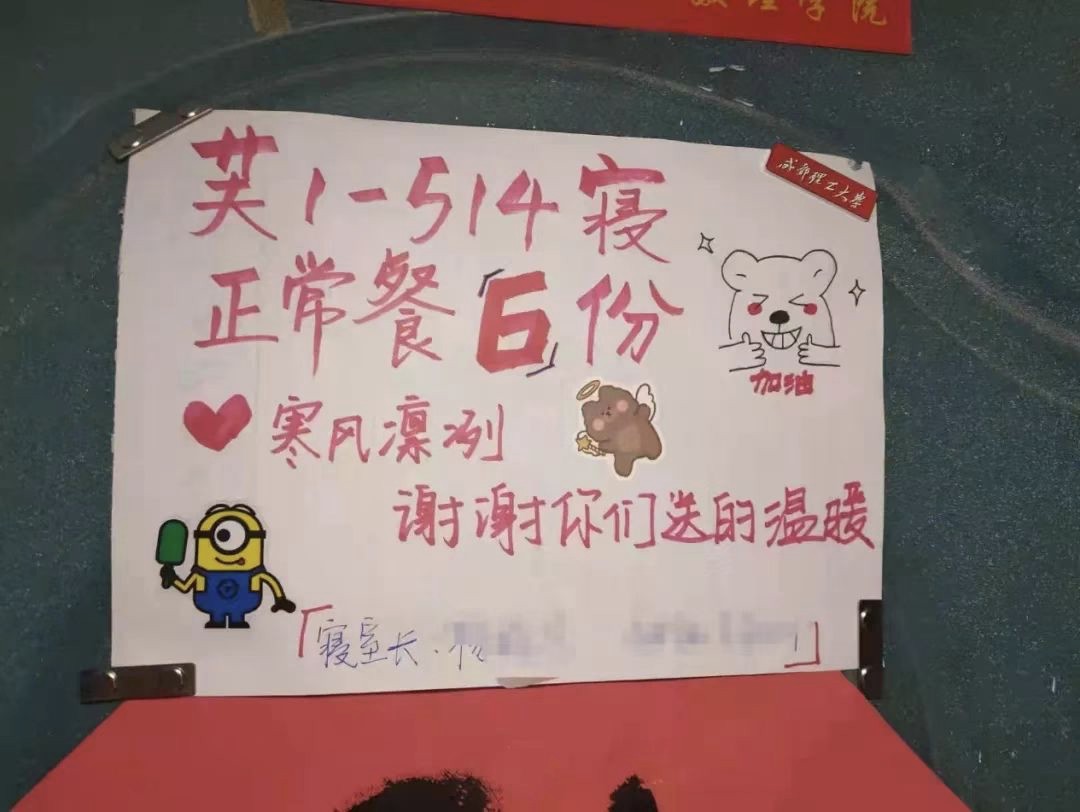 数理学院
成都理工大学
芙1-514寝
正常餐「6」份
加油
寒风凛冽
谢谢你们送的温暖
「寝室长.
」